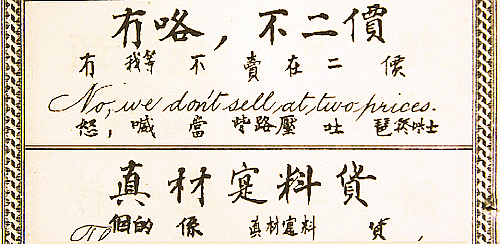 冇咯，不二價
冇 我等 不 賣 在 二 價
No, we don't sell, at, two prices.
喊 當 些路壓 吐 琶
真材寔料貨
個的 係 真材寔料 貨